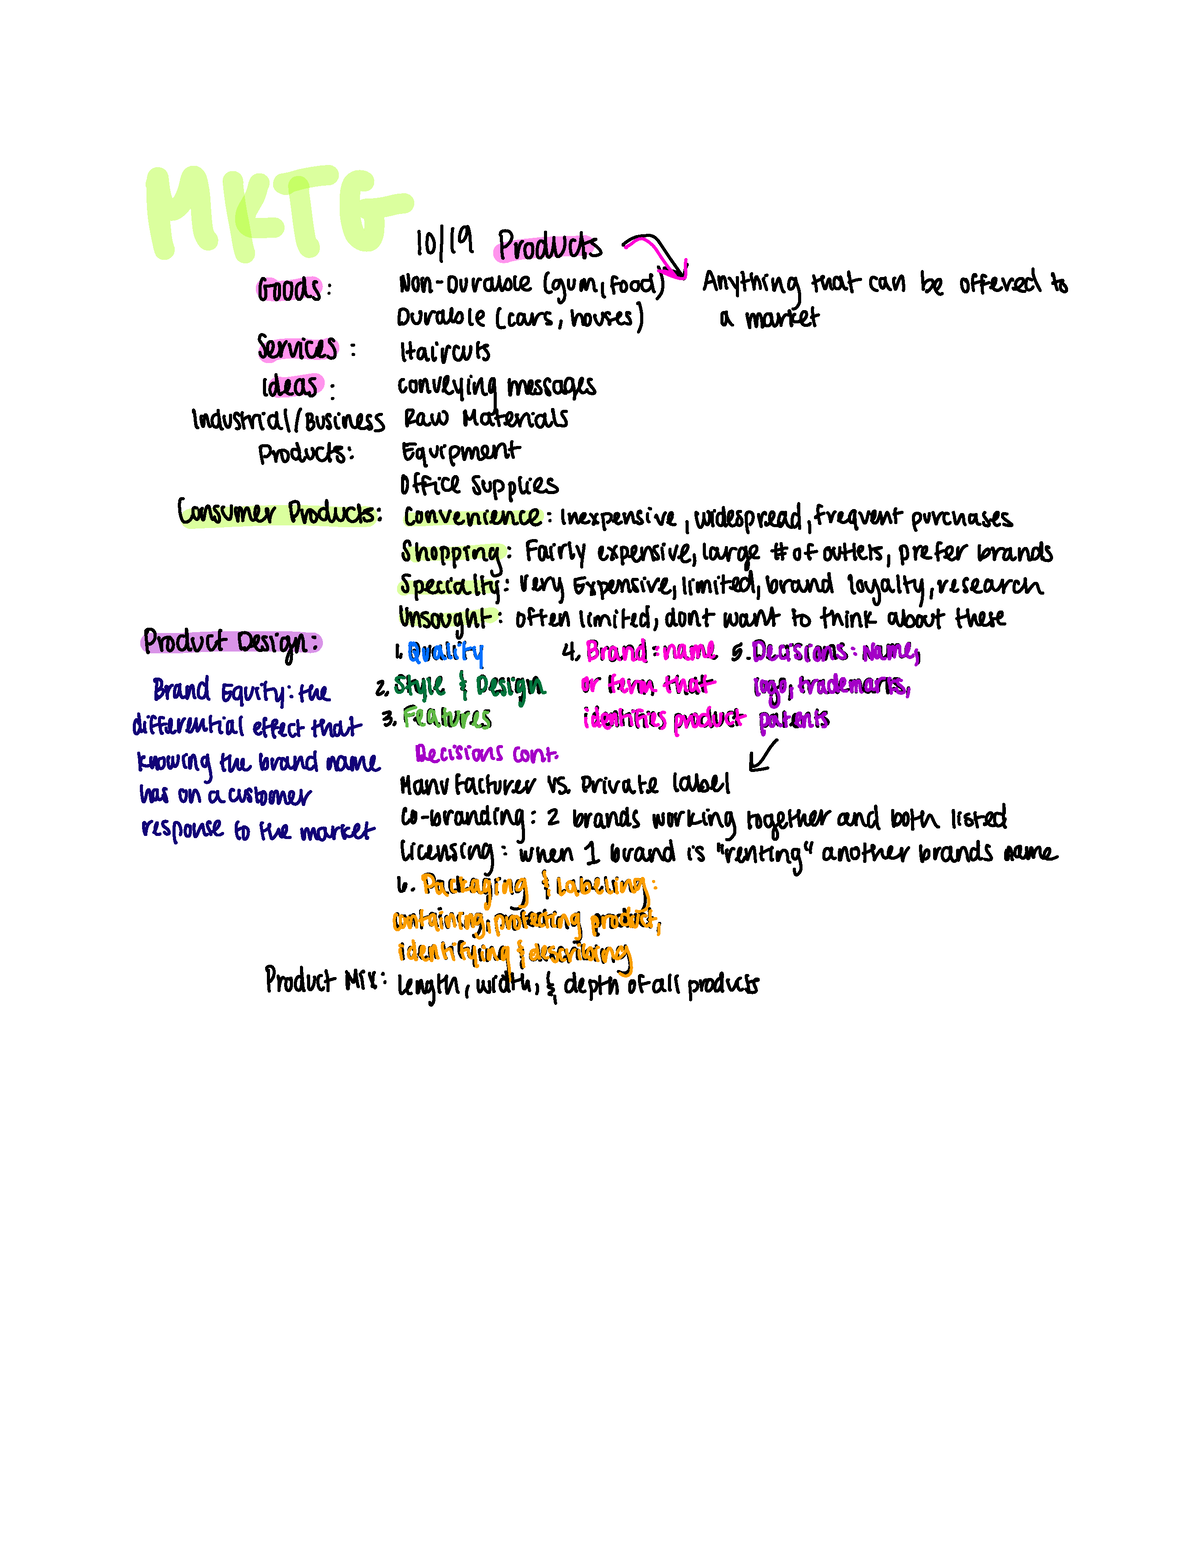 MKTG
10/19 Products
Goods: Non-Durable (gum, food) Anything that can be offered to
Durable (cars, houses) a market
Services: Haircuts
Ideas: conveying messages
Industrial/Business Raw Materials
Products: Equipment
Office Supplies
Consumer Products: Convenience: Inexpensive, widespread, frequent purchases
Shopping: Fairly expensive, large # of outlets, prefer brands
Specialty: Very Expensive, limited, brand loyalty, research
Unsought: often limited, dont want to think about these
Product Design: 1. Quality 4. Brand: name 5. Decisions: Name,
Brand Equity: the 2. Style & Design or term that logo, trademarks,
differential effect that 3. Features identifies product patents
knowing the brand name Decisions cont.
has on a customer Manufacturer vs. Private label
response to the market Co-branding: 2 brands working together and both listed
Licensing: when 1 brand is "renting" another brands name
6. Packaging & Labeling:
containing, protecting product,
identifying & describing
Product Mix: Length, width, & depth of all products